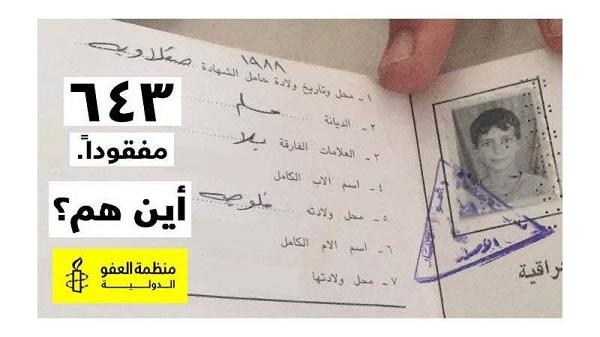 ٦٤٣
مفقوداً.
أين هم؟
منظمة العفو
الدولية
١٩٨٨
١ - محل وتاريخ ولادة حامل الشهادة صقلاوية
٢ - الديانة مسلم
٣ - العلامات الفارقة بلا
٤ - اسم الاب الكامل
٥ - محل ولادته
٦ - اسم الام الكامل
٧ - محل ولادتها